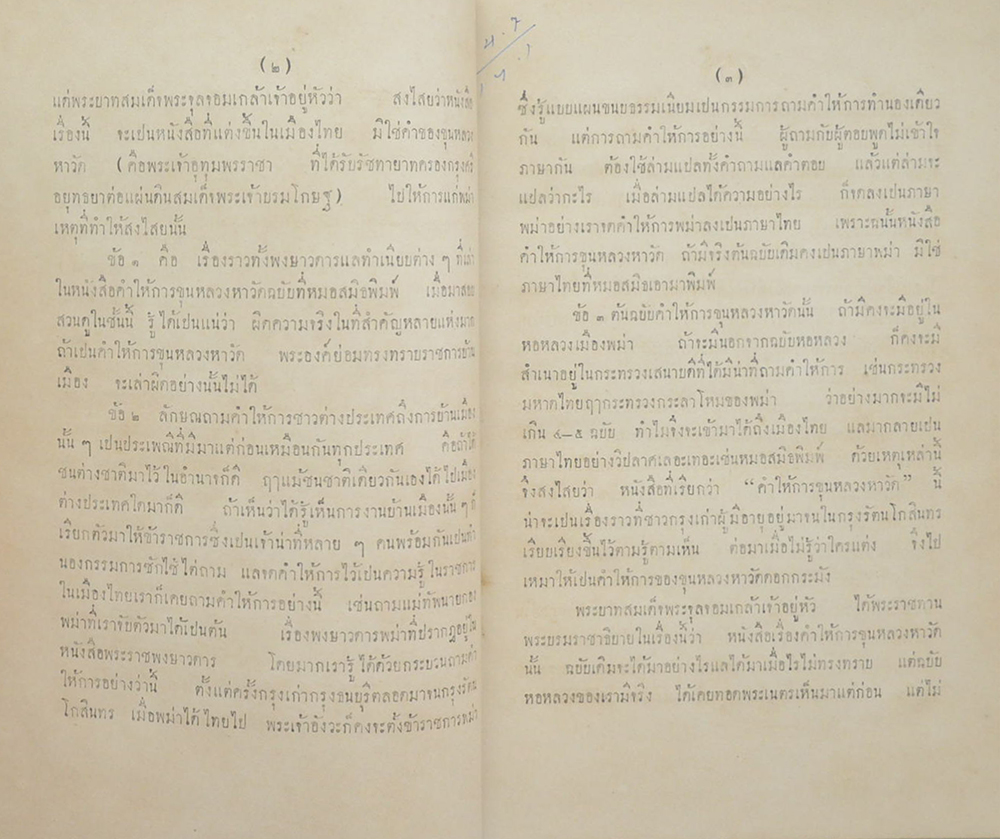 (๒)
แด่พระบาทสมเด็จพระจุลจอมเกล้าเจ้าอยู่หัวว่า สงไสยว่าหนังสือ
เรื่องนี้ จะเปนหนังสือที่แต่งขึ้นในเมืองไทย มิใช่คำของขุนหลวง
หาวัด (คือพระเจ้าอุทุมพรราชา ที่ได้รับรัชทายาทครองกรุงศรี
อยุทธยาต่อแผ่นดินสมเด็จพระเจ้าบรมโกษฐ) ไปให้การแก่พม่า
เหตุที่ทำให้สงไสยนั้น
ข้อ ๑ คือ เรื่องราวทั้งพงษาวดารแลทำเนียบต่าง ๆ ที่เล่า
ในหนังสือคำให้การขุนหลวงหาวัดฉบับที่หมอสมิธพิมพ์ เมื่อมาสอบ
สวนดูในชั้นนี้ รู้ได้เปนแน่ว่า ผิดความจริงในที่สำคัญหลายแห่งมาก
ถ้าเปนคำให้การขุนหลวงหาวัด พระองค์ย่อมทรงทราบราชการบ้าน
เมือง จะเล่าผิดอย่างนั้นไม่ได้
ข้อ ๒ ลักษณถามคำให้การชาวต่างประเทศถึงการบ้านเมือง
นั้น ๆ เปนประเพณีที่มีมาแต่ก่อนเหมือนกันทุกประเทศ คือถ้าได้
ชนต่างชาติมาไว้ในอำนาจก็ดี ฤๅแม้ชนชาติเดียวกันเองได้ไปเมือง
ต่างประเทศใดมาก็ดี ถ้าเห็นว่าได้รู้เห็นการงานบ้านเมืองนั้น ๆ ก็
เรียกตัวมาให้ข้าราชการซึ่งเปนเจ้าน่าที่หลาย ๆ คนพร้อมกันเปนทำ
นองกรรมการซักไซ้ไต่ถาม แลจดคำให้การไว้เปนความรู้ในราชการ
ในเมืองไทยเราก็เคยถามคำให้การอย่างนี้ เช่นถามแม่ทัพนายกอง
พม่าที่เราจับตัวมาได้เปนต้น เรื่องพงษาวดารพม่าที่ปรากฏอยู่ใน
หนังสือพระราชพงษาวดาร โดยมากเรารู้ได้ด้วยกระบวนถามคำ
ให้การอย่างว่านี้ ตั้งแต่ครั้งกรุงเก่ากรุงธนบุรีตลอดมาจนกรุงรัตน
โกสินทร เมื่อพม่าได้ไทยไป พระเจ้าอังวะก็คงจะตั้งข้าราชการพม่า
(๓)
ซึ่งรู้แบบแผนขนบธรรมเนียมเปนกรรมการถามคำให้การทำนองเดียว
กัน แต่การถามคำให้การอย่างนี้ ผู้ถามกับผู้ตอบพูดไม่เข้าใจ
ภาษากัน ต้องใช้ล่ามแปลทั้งคำถามแลคำตอบ แล้วแต่ล่ามจะ
แปลว่ากะไร เมื่อล่ามแปลได้ความอย่างไร ก็จดลงเปนภาษา
พม่าอย่างเราจดคำให้การพม่าลงเปนภาษาไทย เพราะฉนั้นหนังสือ
คำให้การขุนหลวงหาวัด ถ้ามีจริงต้นฉบับเดิมคงเปนภาษาพม่า มิใช่
ภาษาไทยที่หมอสมิธเอามาพิมพ์
ข้อ ๓ ต้นฉบับคำให้การขุนหลวงหาวัดนั้น ถ้ามีคงจะมีอยู่ใน
หอหลวงเมืองพม่า ถ้าจะมีนอกจากฉบับหอหลวง ก็คงจะมี
สำเนาอยู่ในกระทรวงเสนาบดีที่ได้มีน่าที่ถามคำให้การ เช่นกระทรวง
มหาดไทยฤๅกระทรวงกระลาโหมของพม่า ว่าอย่างมากจะมีไม่
เกิน ๔–๕ ฉบับ ทำไมจึงจะเข้ามาได้ถึงเมืองไทย แลมากลายเปน
ภาษาไทยอย่างวิปลาศเลอะเทอะเช่นหมอสมิธพิมพ์ ด้วยเหตุเหล่านี้
จึงสงไสยว่า หนังสือที่เรียกว่า “คำให้การขุนหลวงหาวัด” นี้
น่าจะเปนเรื่องราวที่ชาวกรุงเก่าผู้มีอายุอยู่มาจนในกรุงรัตนโกสินทร
เรียบเรียงขึ้นไว้ตามรู้ตามเห็น ต่อมาเมื่อไม่รู้ว่าใครแต่ง จึงไป
เหมาให้เปนคำให้การของขุนหลวงหาวัดดอกกระมัง
พระบาทสมเด็จพระจุลจอมเกล้าเจ้าอยู่หัว ได้พระราชทาน
พระบรมราชาธิบายในเรื่องนี้ว่า หนังสือเรื่องคำให้การขุนหลวงหาวัด
นั้น ฉบับเดิมจะได้มาอย่างไรแลได้มาเมื่อไรไม่ทรงทราบ แต่ฉบับ
หอหลวงของเรามีจริง ได้เคยทอดพระเนตรเห็นมาแต่ก่อน แต่ไม่